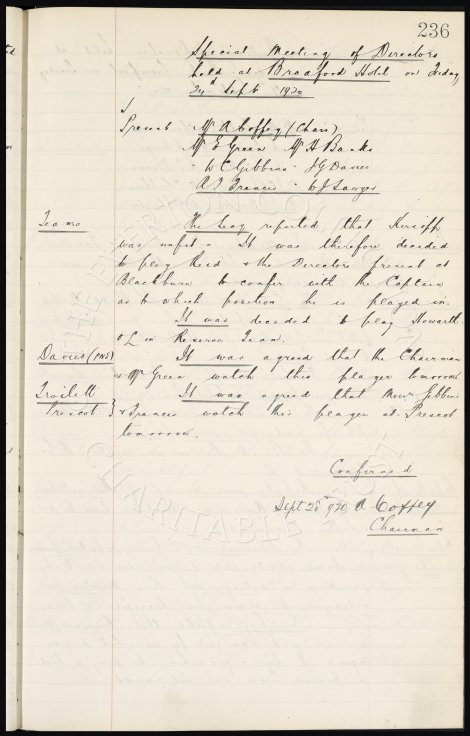 236
Special Meeting of Directors
held at Bradford Hotel on Friday
24th Sept 1920
Present Mr A Coffey (Chair)
Mr E Green Mr H Banks
W C Gibbins J G Davies
A J Francis W J Sawyer
Teams
The Secy reported that
was unfit & It was therefore decided
to play Reid & the Directors present at
Blackburn to confer with the Captain
as to which position he is played in.
It was decided to play Howarth
O L in Reserve Team.
Davies (PNS)
It was agreed that the Chairman
& Mr Green watch this player tomorrow
Prescot
It was agreed that Messrs Gibbins
& Francis watch this player at Prescot
tomorrow.
Confirmed
Sept 28th 1920 A Coffey
Chairman
THE EVERTON
CHARITABLE TRUST